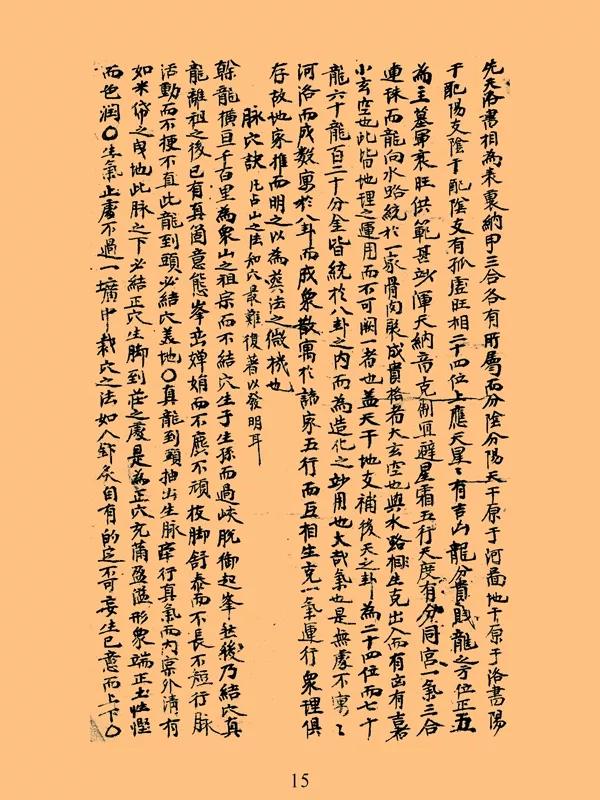 先天洛書相為表裏納甲三合各有所屬而分陰分陽天干原于河圖地干原于洛書陽
干配陽支陰干配陰支有孤虛旺相二十四位上應天星〻有吉山龍分貴賤龍之方位正五
為主墓軍乘旺供範甚妙渾天納音克制宜避星霜五行天度有分同宮一氣三合
連珠而龍向水路統於一家骨肉聚成貴格者大玄空也與水路相生克出入而有凶有嘉
小玄空也此皆地理之運用而不可闕一者也蓋天干地支補後天之卦為二十四位而七十
龍六十龍百二十分金皆統於八卦之內而為造化之妙用也大哉氣也是無處不寓〻
河洛而成數寓於八卦而成象散寓於諸家五行而互相生克一氣運行眾理俱
存故地家推而明之以為葬法之微機也
脉穴訣 凡占山之法和穴最難復著以發明耳
幹龍橫亘千百里為眾山之祖宗而不結穴生子生孫而過峽脫御起峯然後乃結穴真
龍離祖之後已有真箇意態峯巒嬋娟而不麄不頑枝脚舒泰而不長不短行脉
活動而不梗不直此龍到頭必結穴美地〇真龍到頭抽出生脉牽行真氣而內稟外清有
如米帒之曳地此脉之下必結正穴生脚到莊之處是為正穴充滿盈溢形象端正土性慳
而色潤〇生氣止處不過一壙中裁穴之法如人針灸自有的定不可妄生已意而上下〇
15